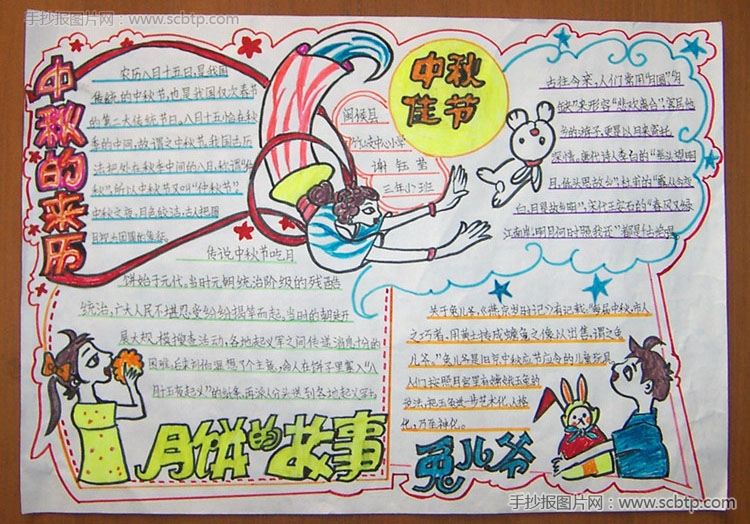 手抄报图片网：www.scbtp.com
中秋的来历
农历八月十五日,是我国
传统的中秋节,也是我国仅次春节
的第二大传统节日,八月十五恰在秋
季的中间,故谓之中秋节,我国古历
法把处在秋季中间的八月,秋谓"仲
秋",所以中秋节又叫"仲秋节"
中秋之夜,月色皎洁,古人把圆
月视为团圆的象征。
中秋佳节
闽侯县
中心小学
谢钰莹
三年(2)班
古往今来,人们常用"月圆"月
缺"来形容"悲欢离合",客居他
乡的游子,更是以月来寄托
深情,唐代诗人李白的"举头望明
月,低头思故乡",杜甫的"露从今夜
白,月是故乡明",宋代王安石的"春风又绿
江南岸,明月何时照我还"都是
传说中秋节吃月
饼始于元代,当时元朝统治阶级的残酷
统治,广大人民不堪忍受纷纷揭竿而起,当时的朝廷
搜查活动,各地起义军之间传递消息的
困难,后来刘伯温想了个主意,命人在饼子里蒙入"八
月十五夜起义"的纸条,再派人分头送到各地起义军
月饼的故事
关于兔儿爷,《燕京岁时记》有记载:"每届中秋,市人
之巧者,用黄土抟成蟾兔之像以出售,谓之兔
儿爷。"兔儿爷是旧京中秋应节应令的儿童玩具
人们按照月宫里有嫦娥玉兔的
说法,把玉兔进一步艺术化,人格
化,乃至神化。
兔儿爷
手抄报图片网：www.scbtp.com